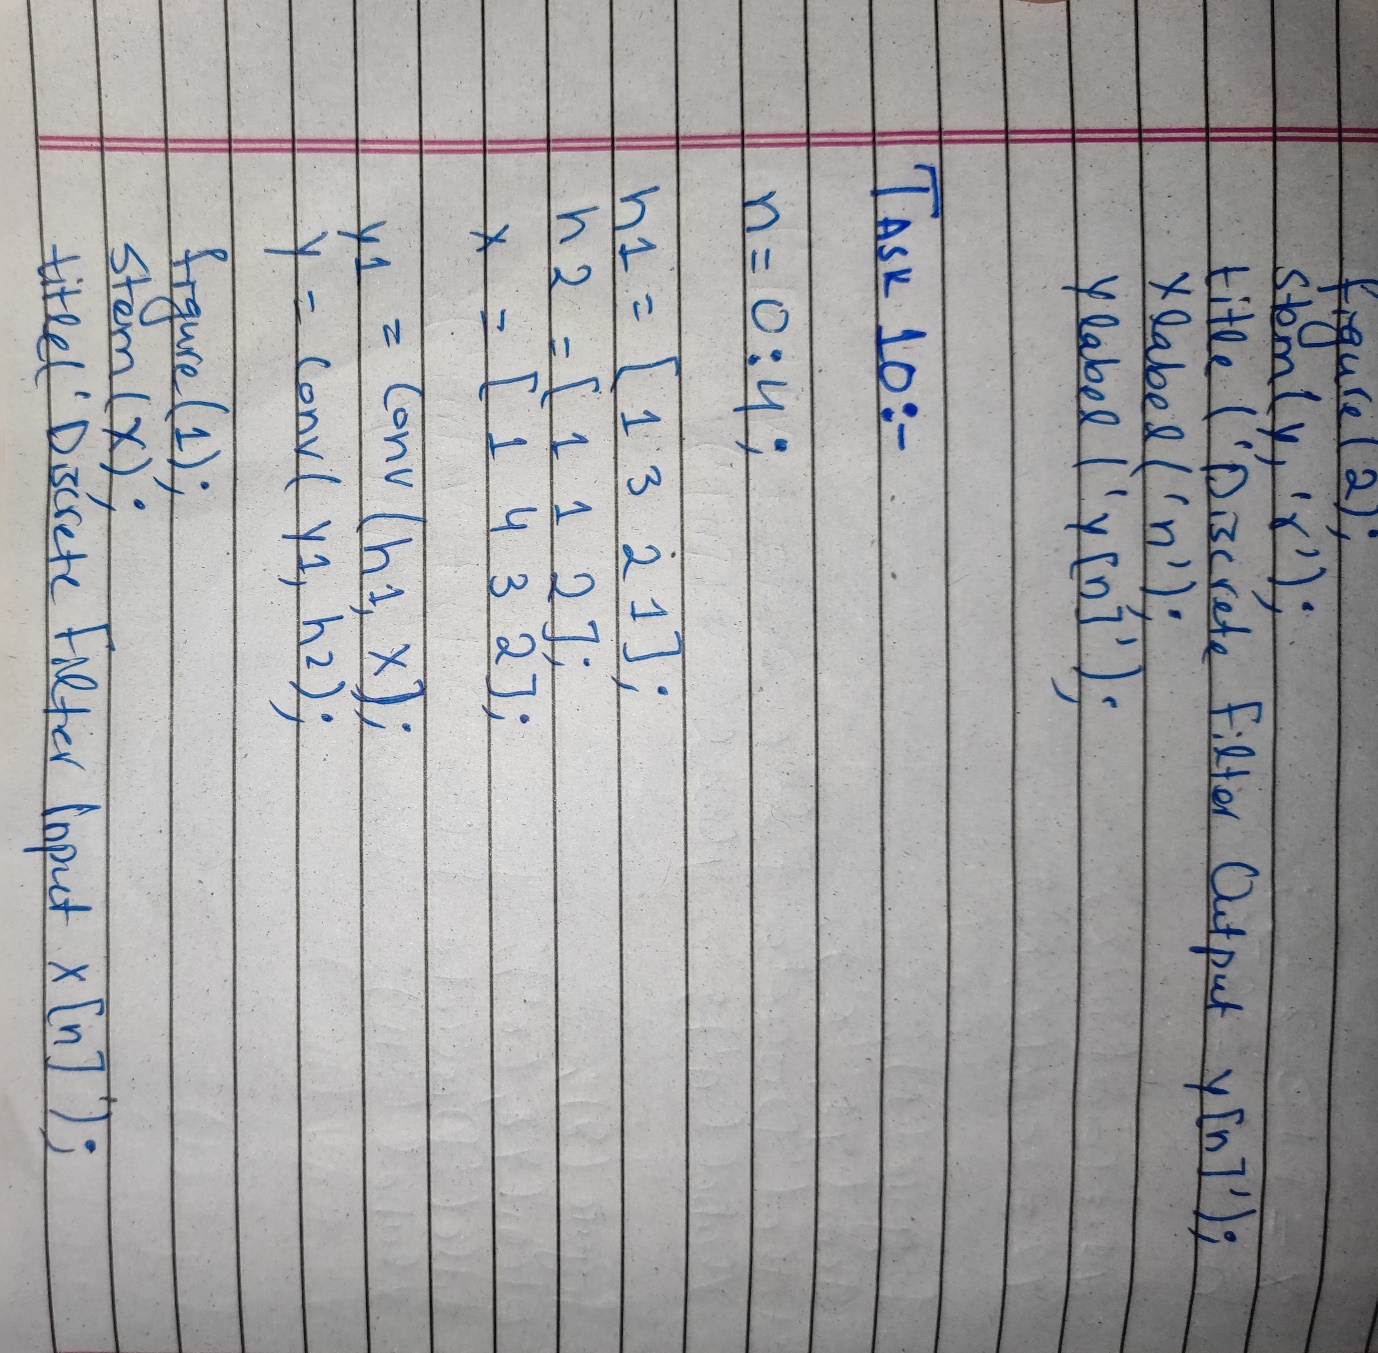 figure(2);
stem(y,'r');
title('Discrete Filter Output y[n]');
xlabel('n');
ylabel('y[n]');
TASK 10:-
n=0:4;
h1=[1 3 2 1];
h2=[1 1 2];
x=[1 4 3 2];
y1=conv(h1,x);
y=conv(y1,h2);
figure(1);
stem(x);
titel('Discrete Filter Input x[n]');